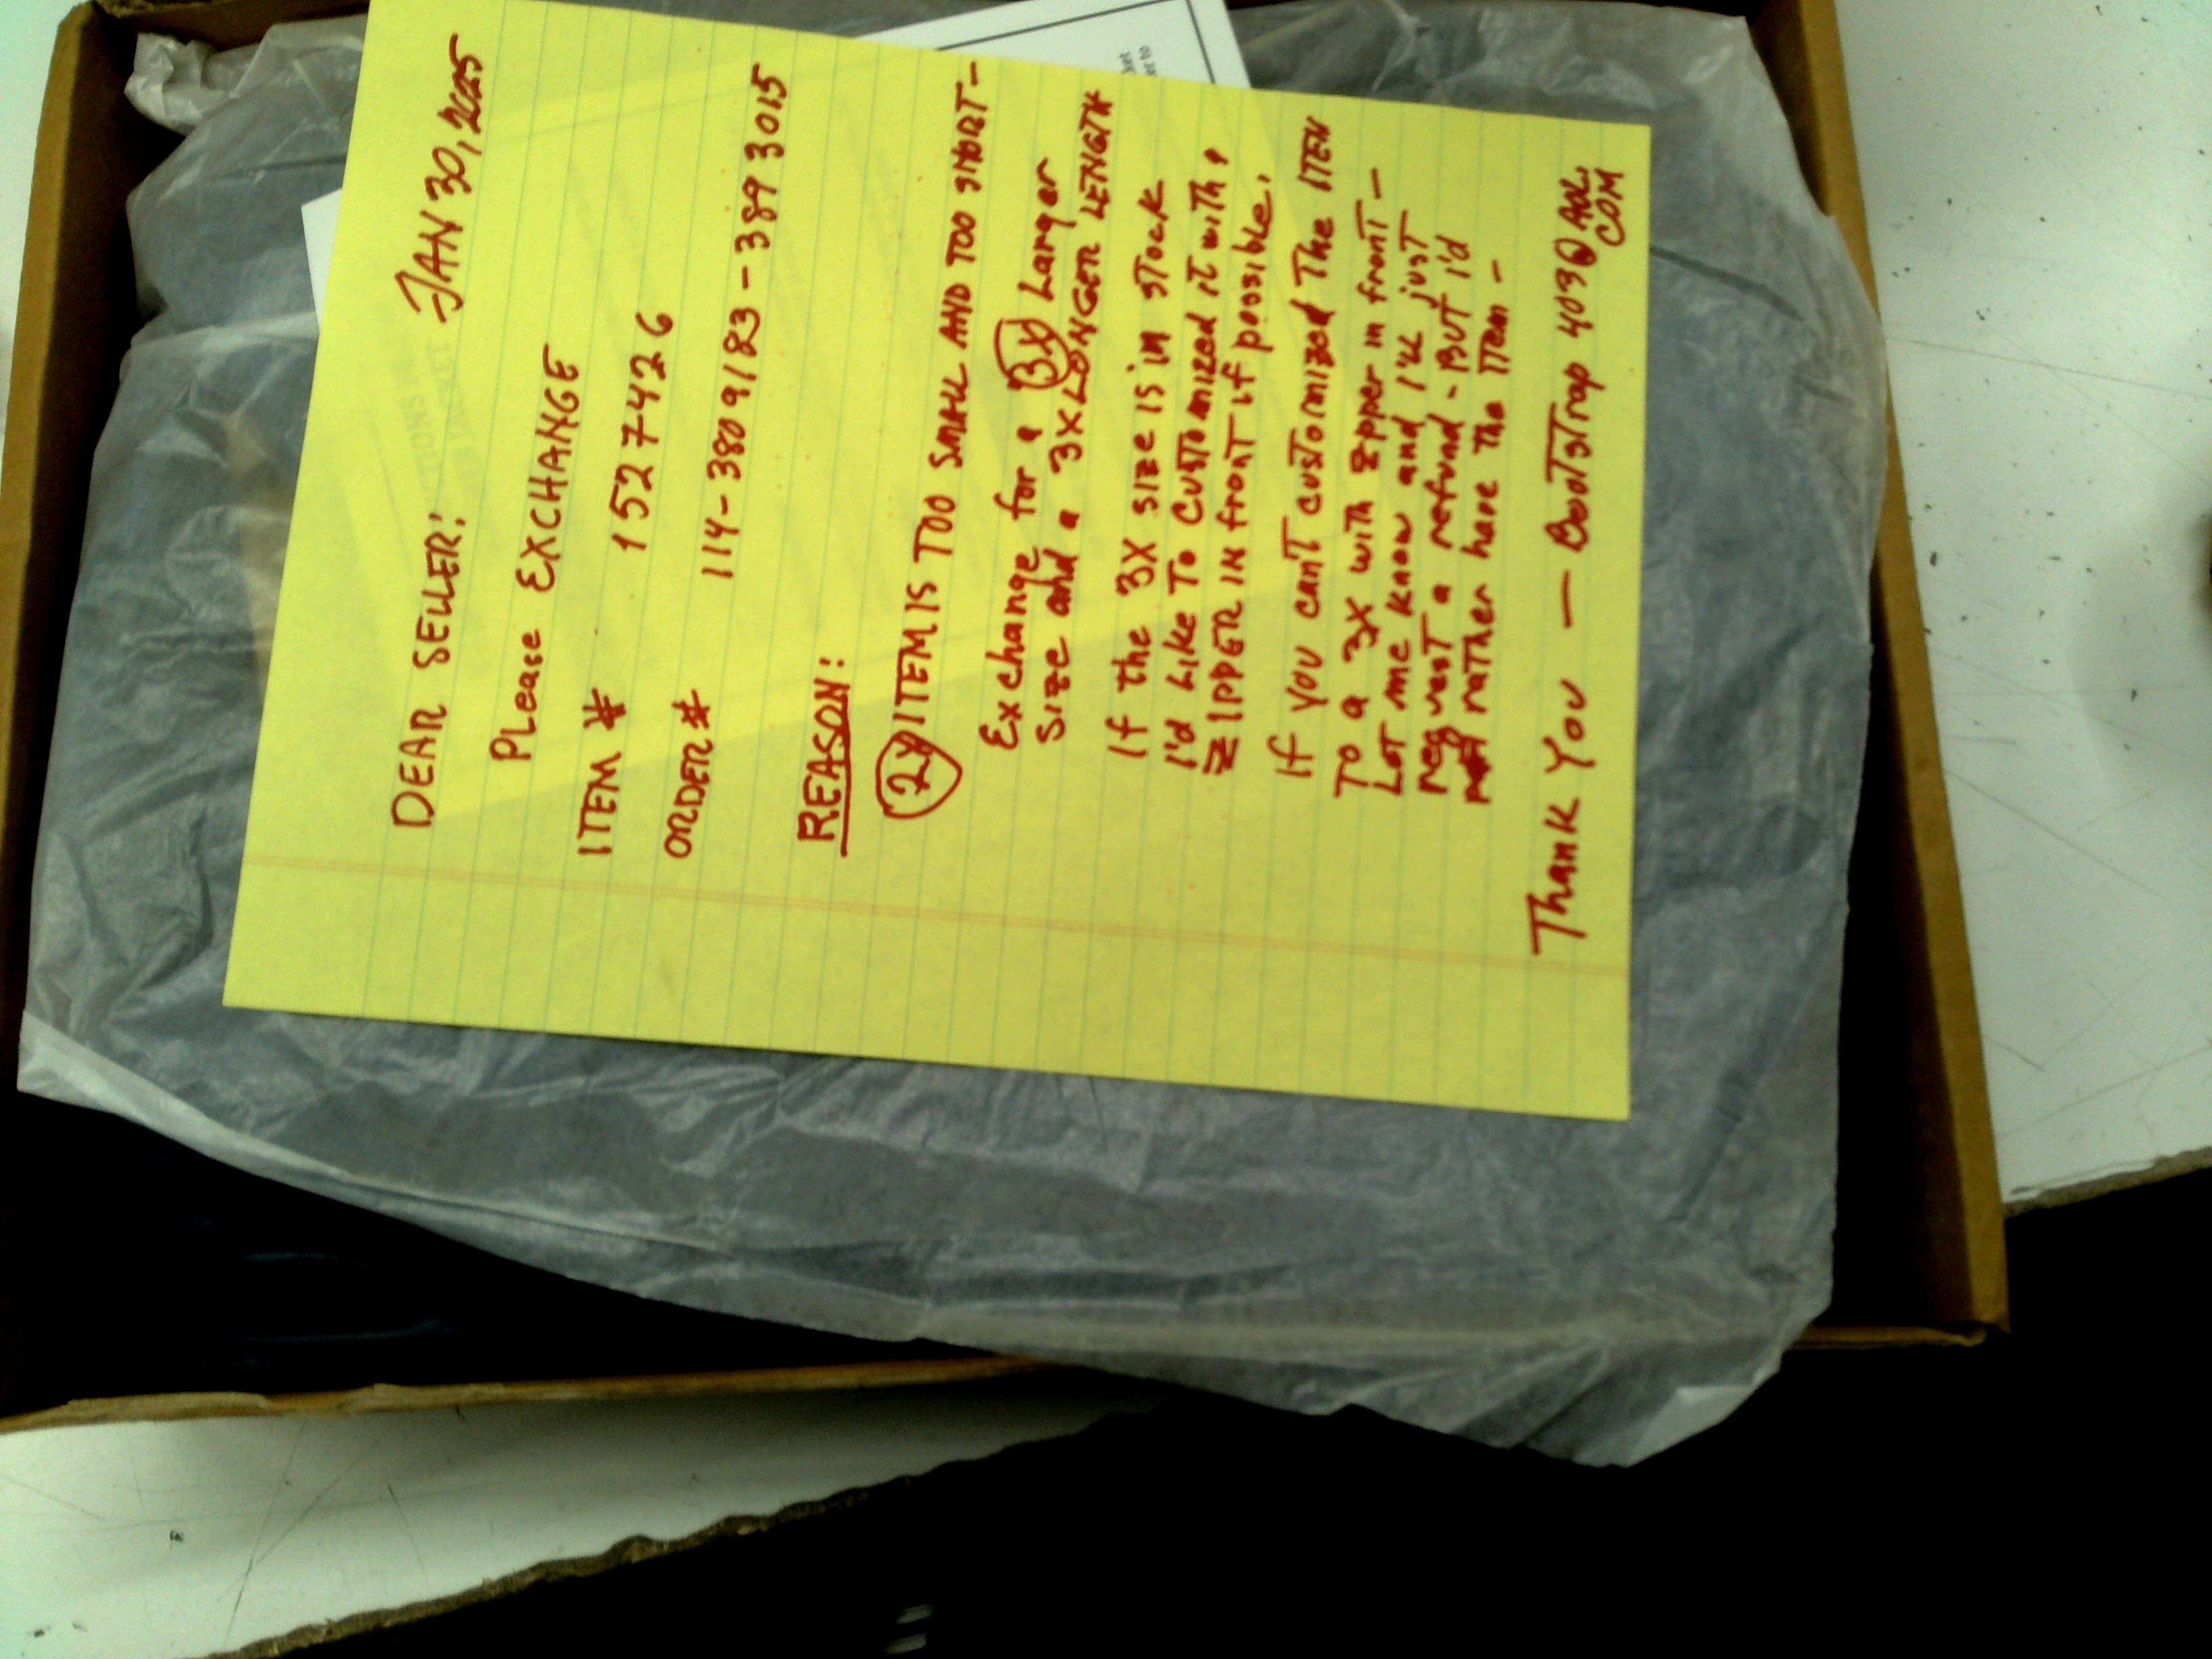 JAN 30, 2025
DEAR SELLER:
Please EXCHANGE
ITEM # 1527426
ORDER # 114-3809123-3893015
REASON:
2X ITEM IS TOO SMALL AND TOO SHORT -
Exchange for a 3X Larger
Size and a 3X LONGER LENGTH
If the 3X size is in stock
I'd Like To Customized it with,
ZIPPER IN front if possible.
If you can't customized The ITEM
To a 3X with zipper in front -
Let me know and I'll just
request a refund - But I'd
rather have the ITEM -
Thank You — Bootstrap 403@AOL.
COM